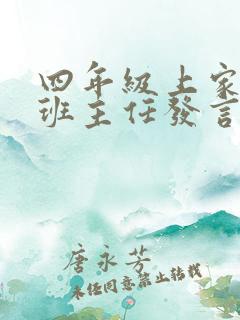 四年級上家
班主任發言
唐永芳
未经同意禁止转载